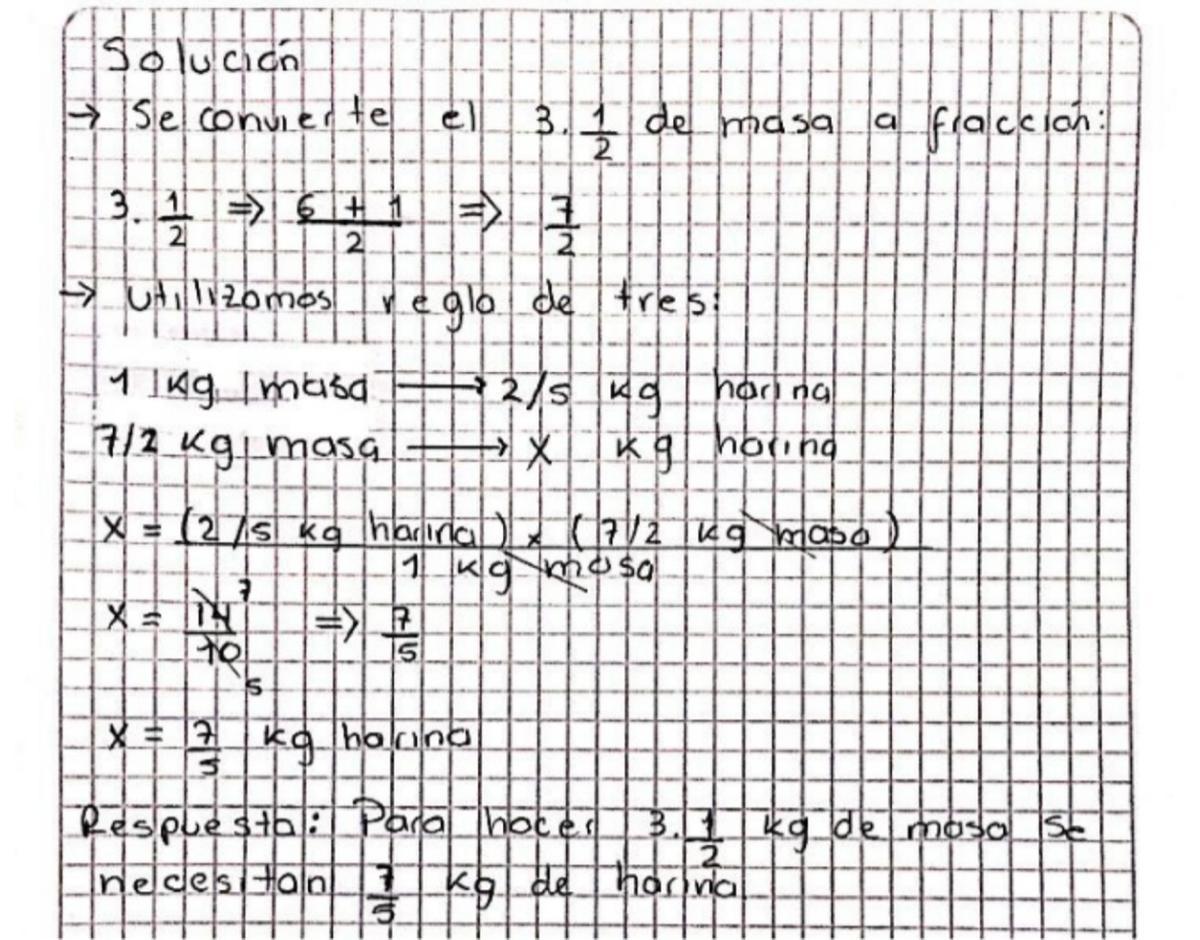 Solución
→ Se convierte el 3. 1/2 de masa a fracción:
3. 1/2 ⇒ 6 + 1/2 ⇒ 7/2
→ Utilizamos regla de tres:
1 kg masa → 2/5 kg harina
7/2 kg masa → X kg harina
X = (2/5 kg harina) x (7/2 kg masa)
1 kg masa
X = 14/10 7 5 ⇒ 7/5
X = 7/5 kg harina
Respuesta: Para hacer 3. 1/2 kg de masa se
necesitan 7/5 kg de harina